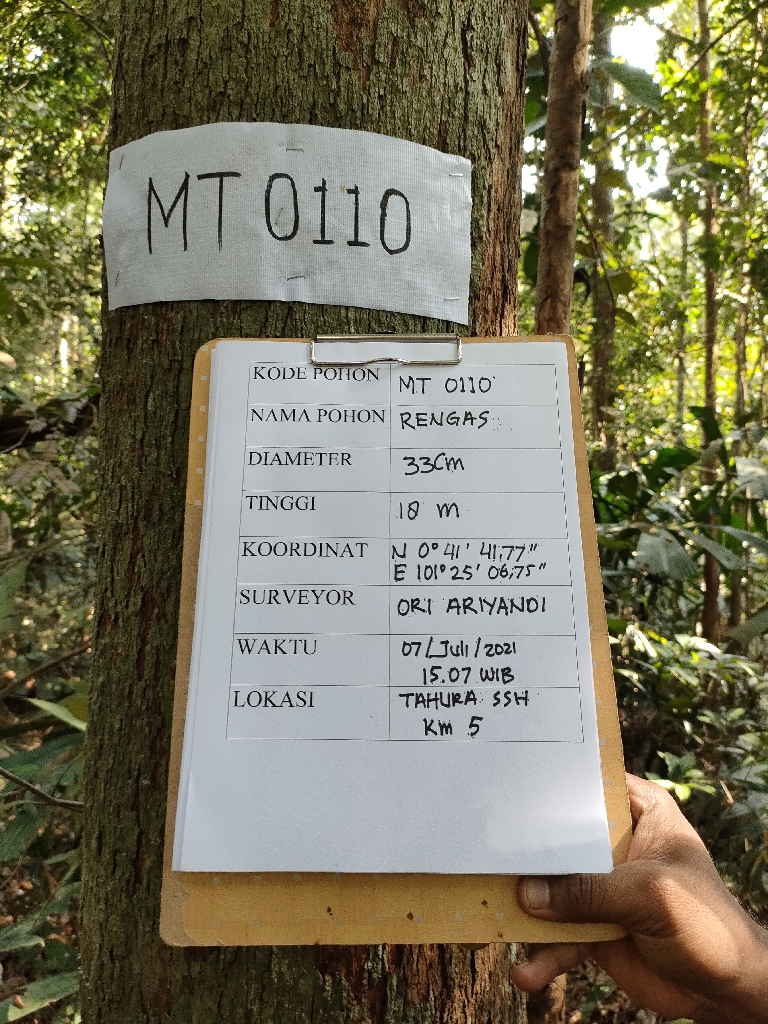 MT 0110
KODE POHON MT 0110
NAMA POHON RENGAS
DIAMETER 33Cm
TINGGI 18 m
KOORDINAT N 0° 41' 41,77"
E 101° 25' 06,75"
SURVEYOR ORI ARIYANDI
WAKTU 07/Juli/2021
15.07 WIB
LOKASI TAHURA SSH
Km 5